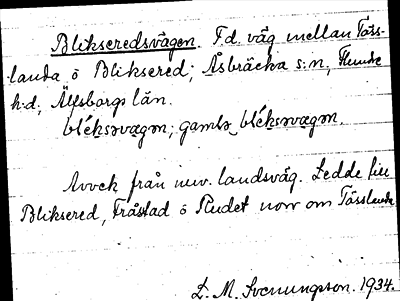 Blikseredsvägen. F.d. väg mellan Täss-
landa o Bliksered; Åsbräcka s:n, Flundre
h:d; Älfsborgs län.
bléksərvægən; gamlə bléksərvægən.
Avvek från nuv. landsväg. Ledde till
Bliksered, Fråstad o Rudet norr om Tösslanda
L. M. Svenungsson. 1934.